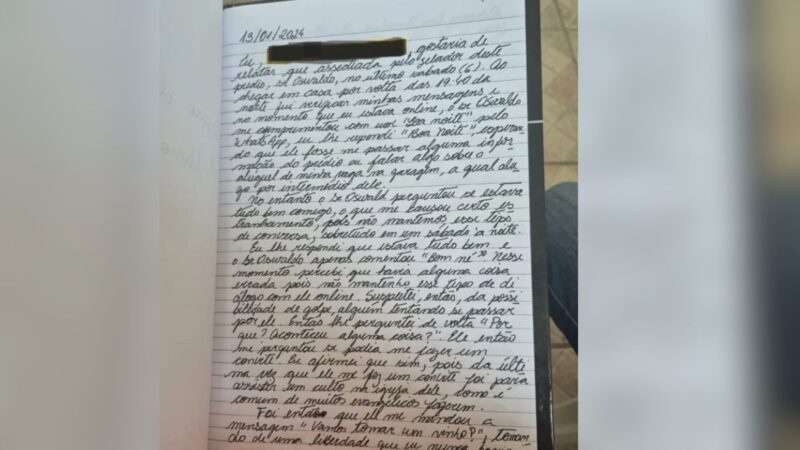 13/01/2024
Eu, , gostaria de
relatar que assediada pelo zelador deste
prédio, Sr Oswaldo, no último sábado (6). Ao
chegar em casa por volta das 19:40 da
noite fui verificar minhas mensagens e
no momento que eu estava online, o Sr Oswaldo
me cumprimentou com um "Boa noite" pelo
WhatsApp, eu lhe repondi "Boa Noite", esperan
do que ele fosse me passar alguma infor
mação do prédio ou falar algo sobre o
aluguel de minha vaga na garagem, a qual alu
go por intermédio dele.
No entanto o Sr Oswald perguntou se estava
tudo bem comigo, o que me causou certo es
tranhamento, pois não mantemos esse tipo
de conversa, sobretudo em um sábado a noite.
Eu lhe respondi que estava tudo bem e
o Sr Oswaldo apenas comentou "Bom né". Nesse
momento percebi que havia alguma coisa
errada pois não mantenho esse tipo de di
álogo com ele online. Suspeitei, então, da possi
bilidade de golpe, alguém tentando se passar
por ele. Então lhe perguntei de volta "Por
que? Aconteceu alguma coisa?". Ele então
me perguntou se podia me fazer um
convite. Eu afirmei que sim, pois da últi
ma vez que ele me fez um convite foi para
assistir um culto na igreja dele, como é
comum de muitos evangélicos fazerem.
Foi então que ele me mandou a
mensagem "Vamos tomar um vinho?", toman
do de uma liberdade que eu nunca